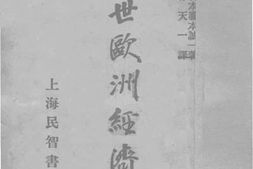 天一譯
世歐洲經濟
上海民智書